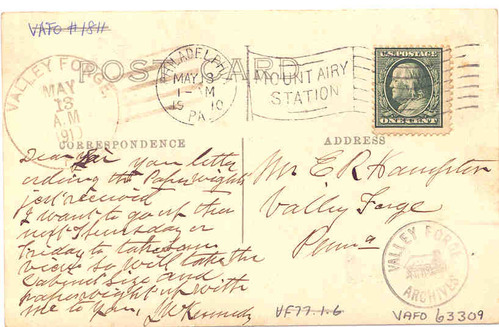 VAFO # 1811
POST CARD
VALLEY FORGE.
MAY
18
A.M
1910
PHILADELPHIA
MAY 3
1 - M
19 10
PA.
MOUNT AIRY
STATION
U.S. POSTAGE
ONE CENT
CORRESPONDENCE
ADDRESS
Dear Sir your letter
ordering the Paper Wights
just received
I want to go up ther
next Thursday or
Friday to take som
views so will take the
Cabinet size and
paper weight up with
me to you, J W Kennedy
Mr E R Hampton
Valley Forge
Penna
VALLEY FORGE
ARCHIVES
VF77.1.6
VAFO 63309